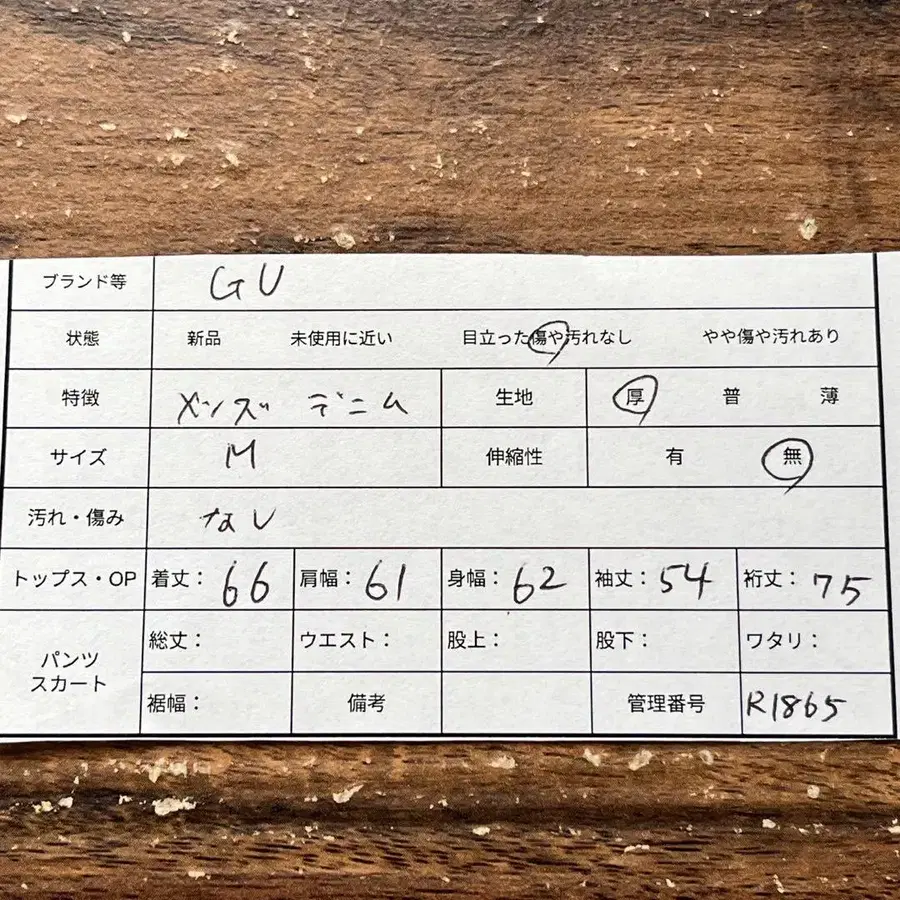 ブランド等 GU
状態 新品 未使用に近い 目立った傷や汚れなし やや傷や汚れあり
特徴 メンズ デニム 生地 厚 普 薄
サイズ M 伸縮性 有 無
汚れ・傷み なし
トップス・OP 着丈： 66 肩幅： 61 身幅： 62 袖丈： 54 裄丈： 75
パンツ
スカート
総丈： ウエスト： 股上： 股下： ワタリ：
裾幅： 備考 管理番号 R1865